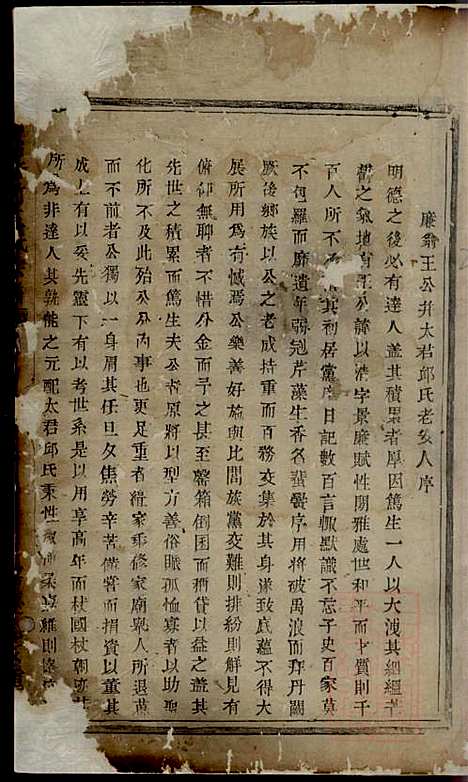 廉翁王公幷太君邱氏老安人序
明德之後必有達人蓋其積累者厚因篤生一人以大洩其絪縕平
鬱之氣地有王公諱以浩字景廉賦性閒雅處世和平而才質則千
百人所不 其利居黨 日記數百言輙默識不忘子史百家莫
不包羅而靡遺年弱冠芹藻生香名蜚黌序用將破禹浪而拜丹闕
厥後鄉族以公之老成持重而百務交集於其身遂致底蘊不得大
展所用爲有憾焉公樂善好施與比閭族黨交難則排紛則解見有
俯仰無聊者不惜分金而予之甚至罄箱倒囷而稱貸以益之蓋其
先世之積累而篤生夫公者原將以型方善俗賑孤恤寡者以助聖
化所不及此殆公分內事也更足重者絳家乘修家廟衆人所退葸
而不前者公獨以一身肩其任旦夕焦勞辛苦備嘗而捐資以董其
成上有以妥先靈下有以考世系是以用享高年而杖國杖朝
所爲非達人其孰能之元配太君邱氏秉性 柔 雞則